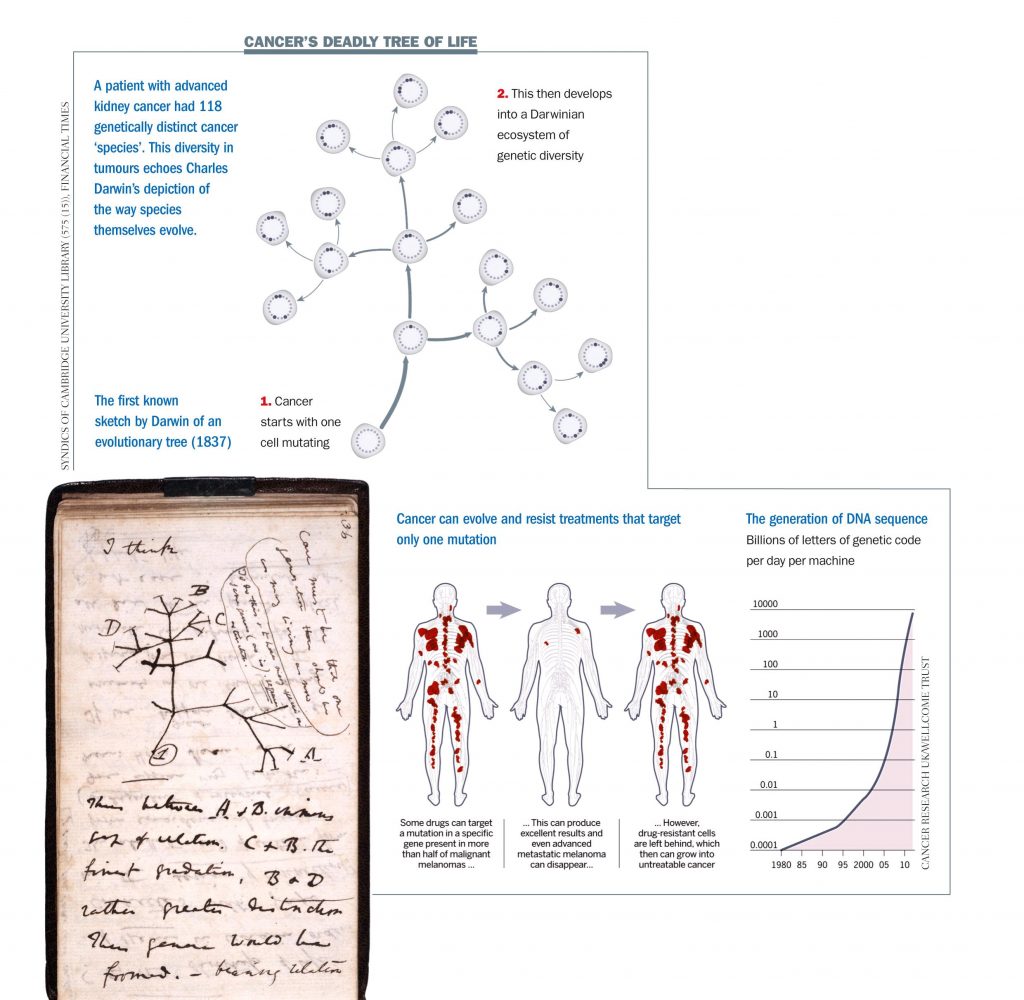 CANCER'S DEADLY TREE OF LIFE
A patient with advanced
kidney cancer had 118
genetically distinct cancer
'species'. This diversity in
tumours echoes Charles
Darwin's depiction of
the way species
themselves evolve.
2. This then develops
into a Darwinian
ecosystem of
genetic diversity
SYNDICS OF CAMBRIDGE UNIVERSITY LIBRARY (575 (15)), FINANCIAL TIMES
The first known
sketch by Darwin of an
evolutionary tree (1837)
1. Cancer
starts with one
cell mutating
36
I think
Case must be
that one
generation then should be
as many living as now
To do this & to have many species in
same genus (as is) requires
extinction.
B
C
D
A
1
Thus between A & B. immense
gap of relation. C & B. the
finest gradation, B & D
rather greater distinction
Thus genera would be
formed. — bearing relation
Cancer can evolve and resist treatments that target
only one mutation
Some drugs can target
a mutation in a specific
gene present in more
than half of malignant
melanomas ...
... This can produce
excellent results and
even advanced
metastatic melanoma
can disappear...
... However,
drug-resistant cells
are left behind, which
then can grow into
untreatable cancer
The generation of DNA sequence
Billions of letters of genetic code
per day per machine
10000
1000
100
10
1
0.1
0.01
0.001
0.0001
1980 85 90 95 2000 05 10
CANCER RESEARCH UK/WELLCOME TRUST